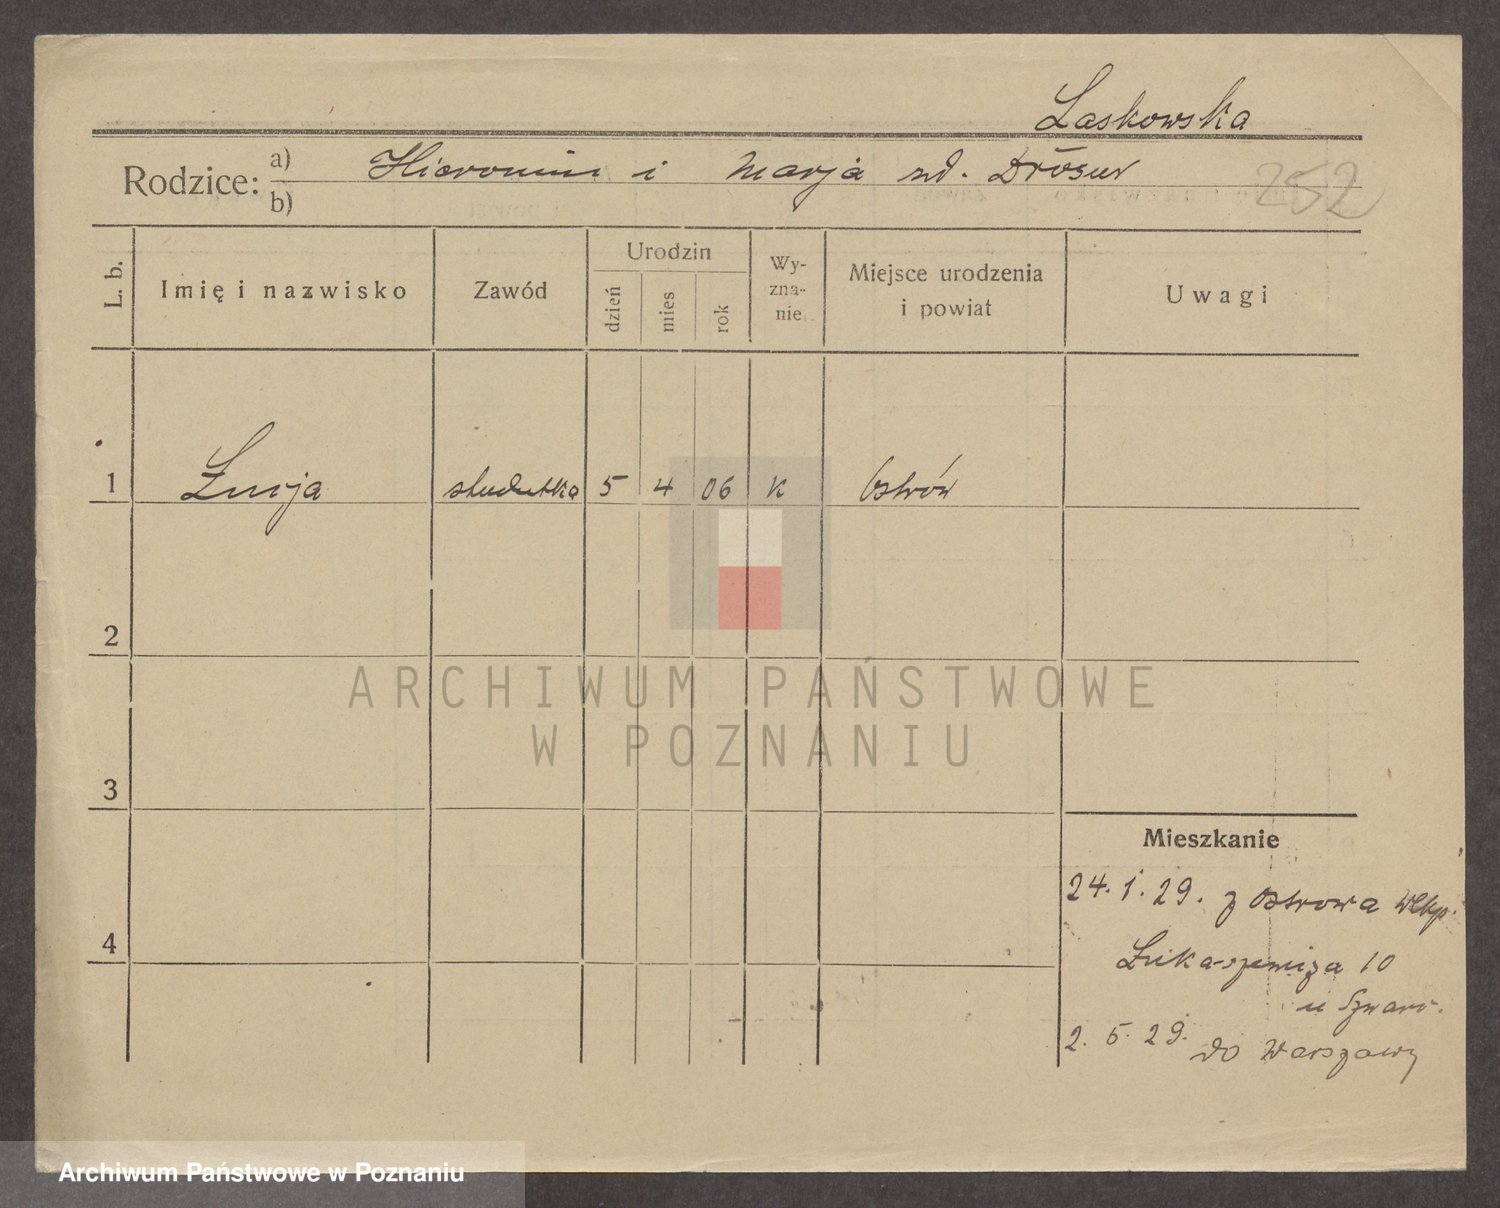 Laskowska
Rodzice: a) Hieronim i Marja zd.
b)
252
L. b.
Imię i nazwisko
Zawód
Urodzin
dzień
mies
rok
Wy-
zna-
nie
Miejsce urodzenia
i powiat
Uwagi
1 Łucja studentka 5 4 06 K Ostrów
2
3
4
ARCHIWUM PAŃSTWOWE
W POZNANIU
Mieszkanie
24. 1. 29. z Ostrowa Wlkp.
10
u
2. 5. 29. do Warszawy
Archiwum Państwowe w Poznaniu